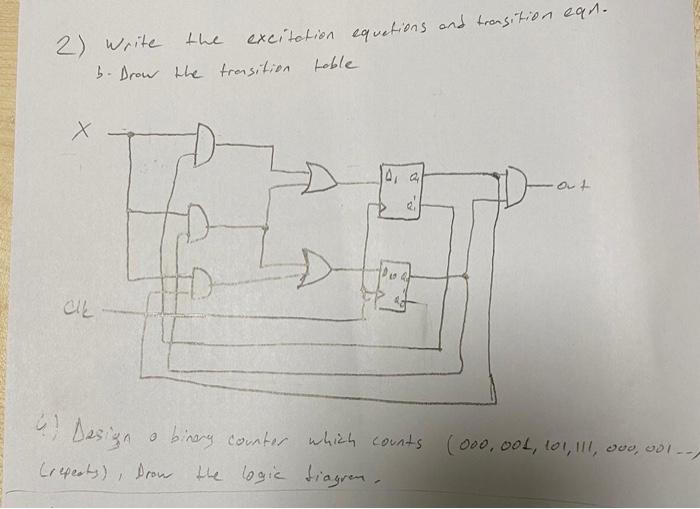 2) Write the excitation equations and transition eqn.
b- Draw the transition table
X
D1 Q1
Q1'
out
D0 Q0
Q0'
Clk
4) Design a binary counter which counts (000, 001, 101, 111, 000, 001 --,
(repeats), Draw the logic diagram.